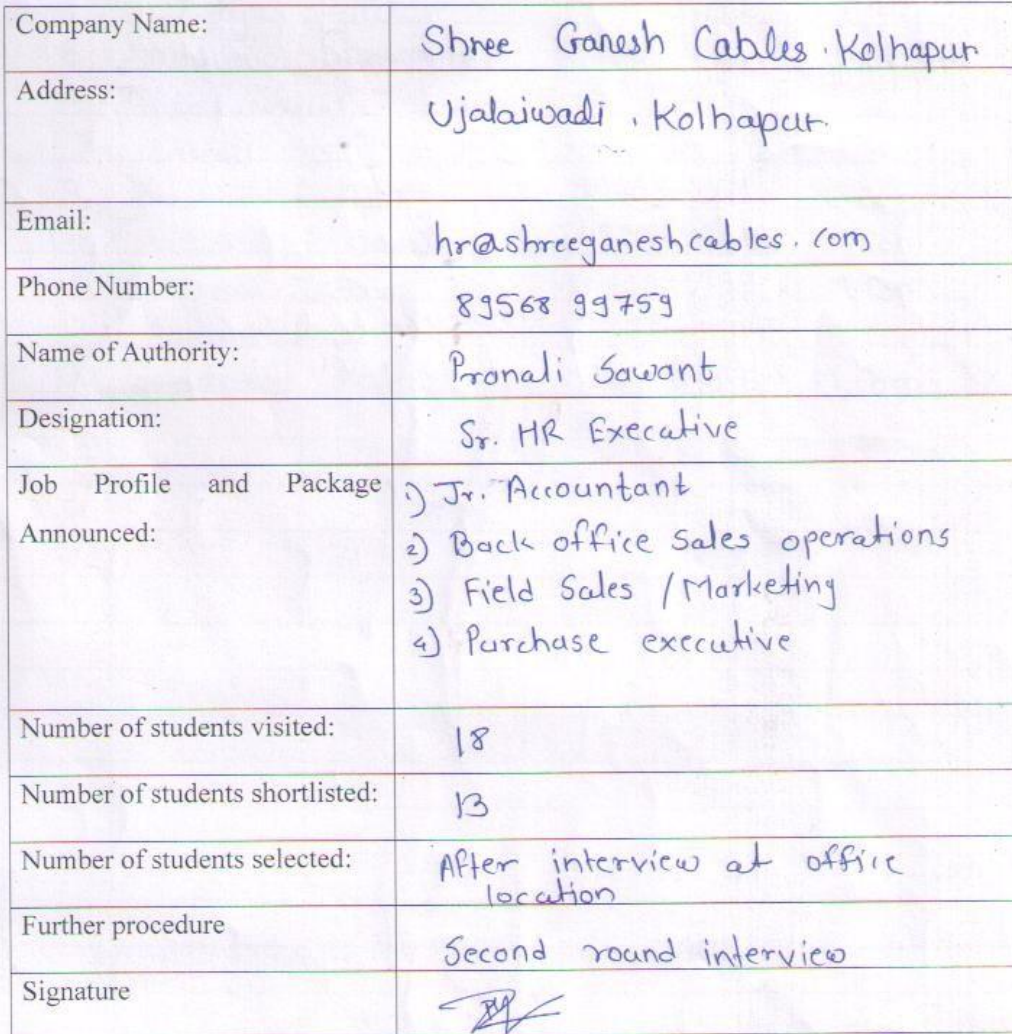 Company Name: Shree Ganesh Cables. Kolhapur
Address: Ujalaiwadi. Kolhapur
Email: hr@shreeganeshcables.com
Phone Number: 89568 99759
Name of Authority: Pranali Sawant
Designation: Sr. HR Executive
Job Profile and Package 1) Jr. Accountant
Announced: 2) Back office Sales operations
3) Field Sales / Marketing
4) Purchase executive
Number of students visited: 18
Number of students shortlisted: 13
Number of students selected: After interview at office
location
Further procedure Second round interview
Signature